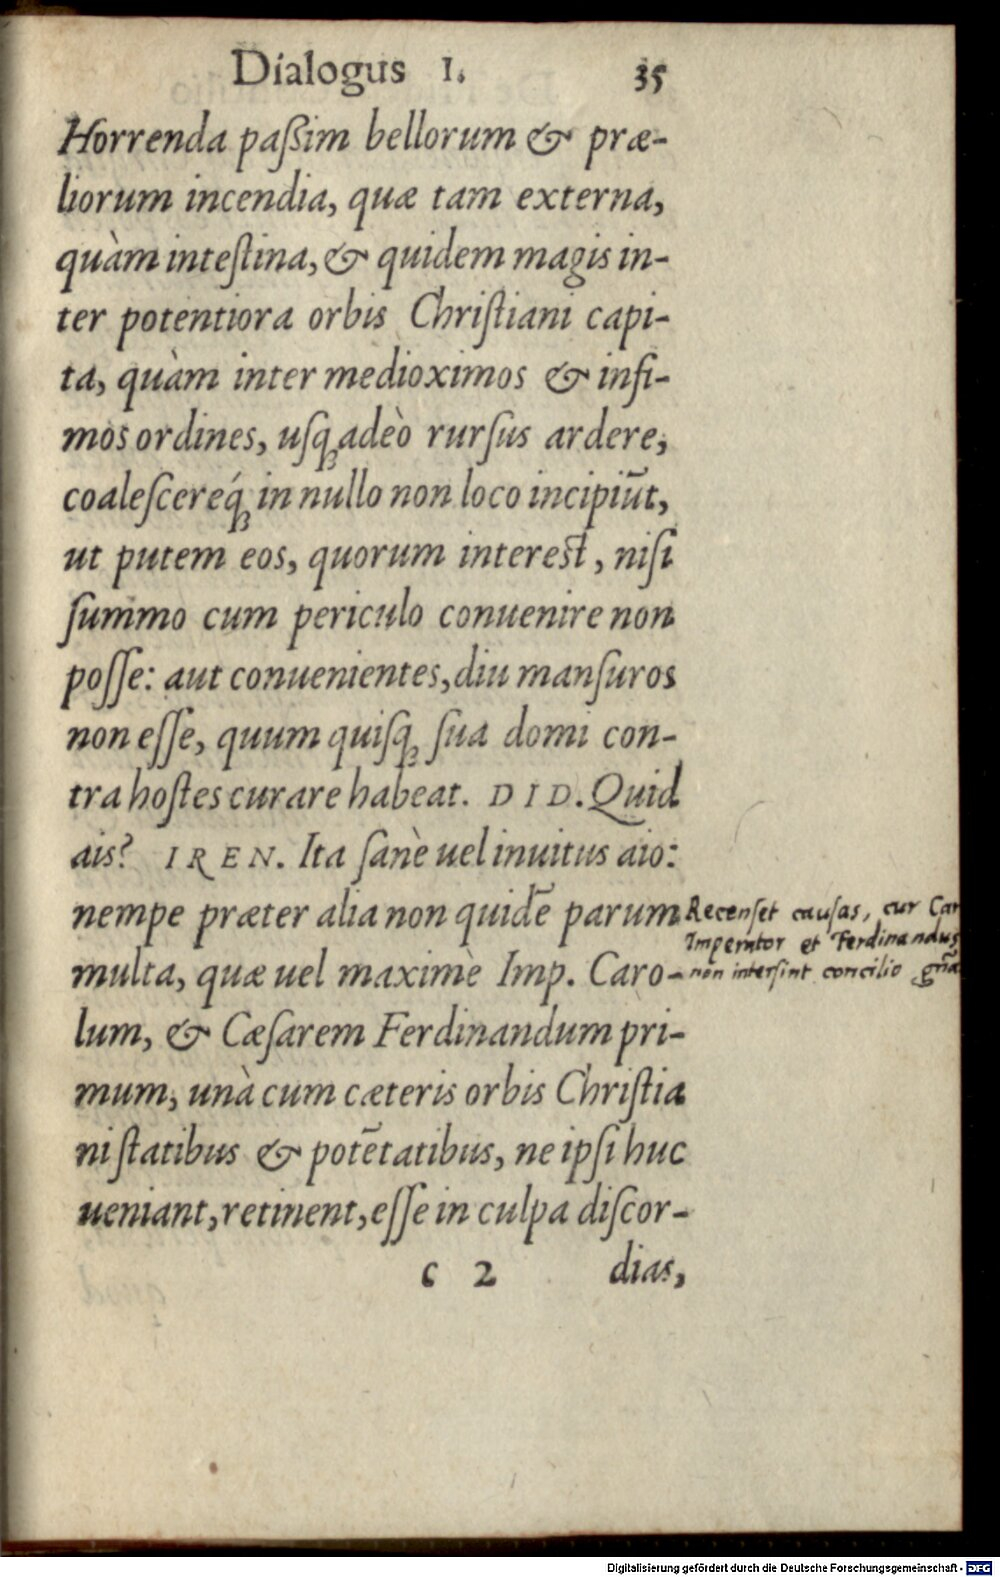 Dialogus I. 35
Horrenda paßim bellorum & præ-
liorum incendia, quæ tam externa,
quàm inteſtina, & quidem magis in-
ter potentiora orbis Chriſtiani capi-
ta, quàm inter medioximos & infi-
mos ordines, uſqꝫ adeò rurſus ardere,
coaleſcereq́ꝫ in nullo non loco incipiūt,
ut putem eos, quorum intereſt, niſi
ſummo cum periculo conuenire non
poſſe: aut conuenientes, diu manſuros
non eſſe, quum quiſqꝫ ſua domi con-
tra hoſtes curare habeat. DID. Quid
ais? IREN. Ita ſanè uel inuitus aio:
nempe præter alia non quidē parum
multa, quæ uel maximè Imp. Caro-
lum, & Cæſarem Ferdinandum pri-
mum, unà cum cæteris orbis Chriſtia
ni ſtatibus & potētatibus, ne ipſi huc
ueniant, retinent, eſſe in culpa diſcor-
c 2 dias,
Recenſet cauſas, cur Car
Imperator et Ferdinandus
non interſint concilio gn̄a
Digitalisierung gefördert durch die Deutsche Forschungsgemeinschaft - DFG